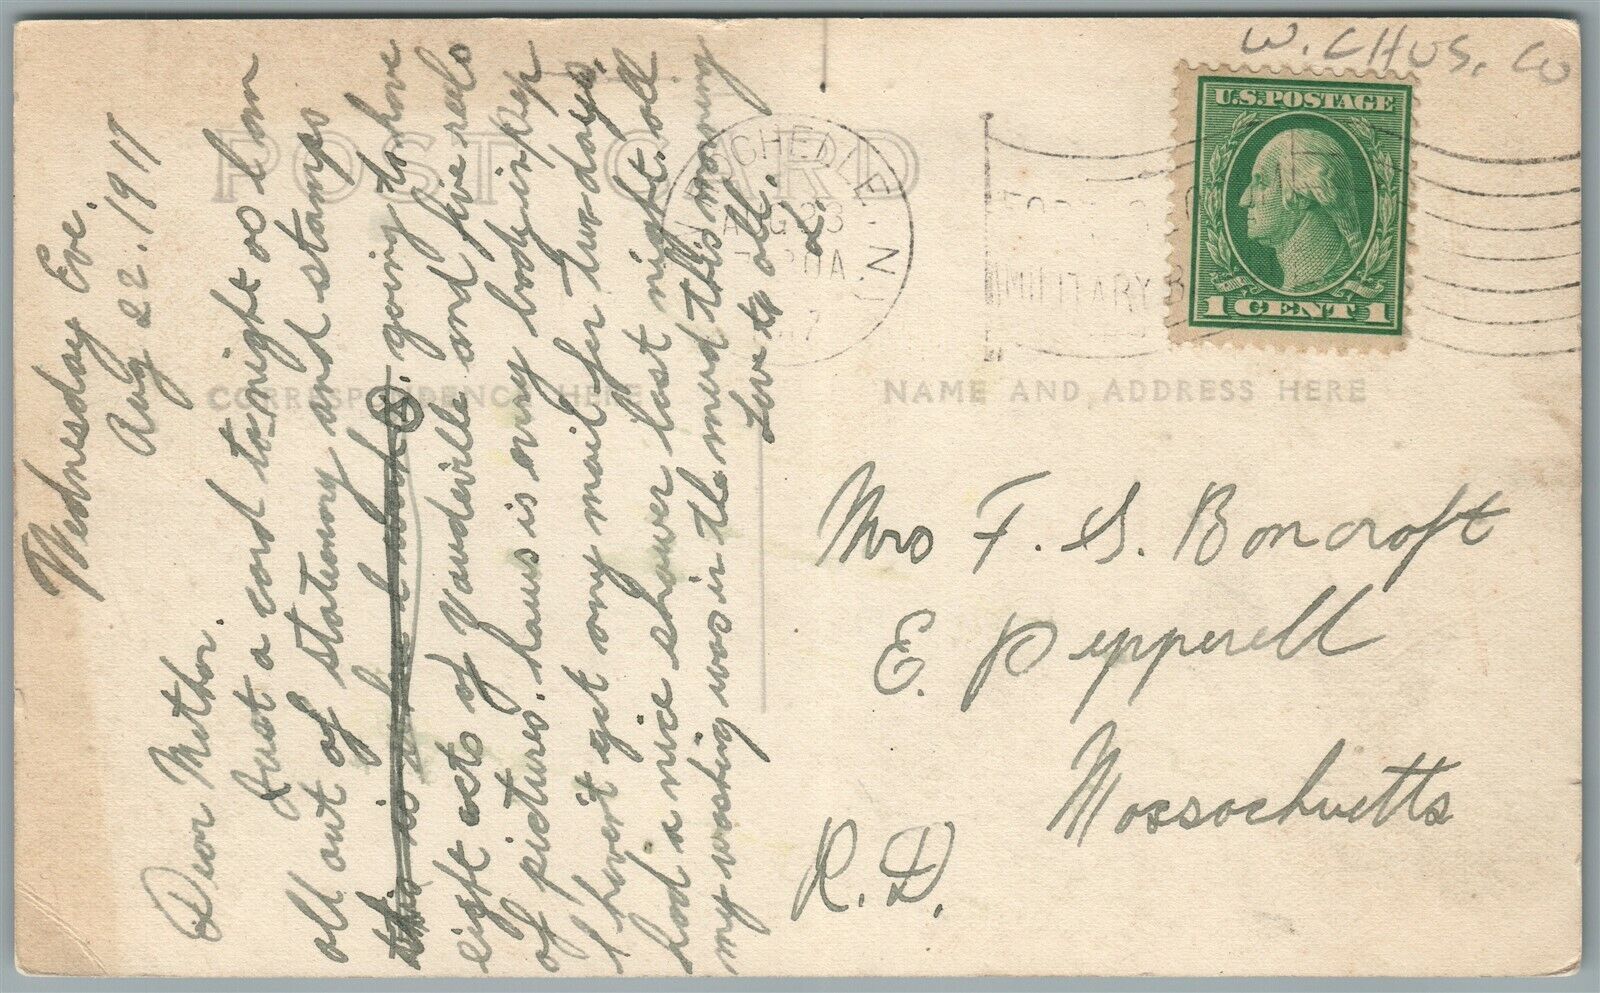 W. CHUS, CO
POST CARD
CORRESPONDENCE HERE
NAME AND ADDRESS HERE
U.S. POSTAGE
1 CENT 1
ROCHELLE
N.
AUG 23
MILITARY
Wednesday Eve.
Aug 22. 1917
Dear Mother.
Just a card to night as I am
all out of stationery and stamps
this is going to have
eight acts of Vaudeville and five reels
of pictures. haus is evry body in Pep
I haven't got any mail for two days.
had a nice shower last night. all
my washing was in the mud this morning
Love to all.
L.
Mrs F. S. Boncroft
E. Pepperell
Massachuetts
R. D.